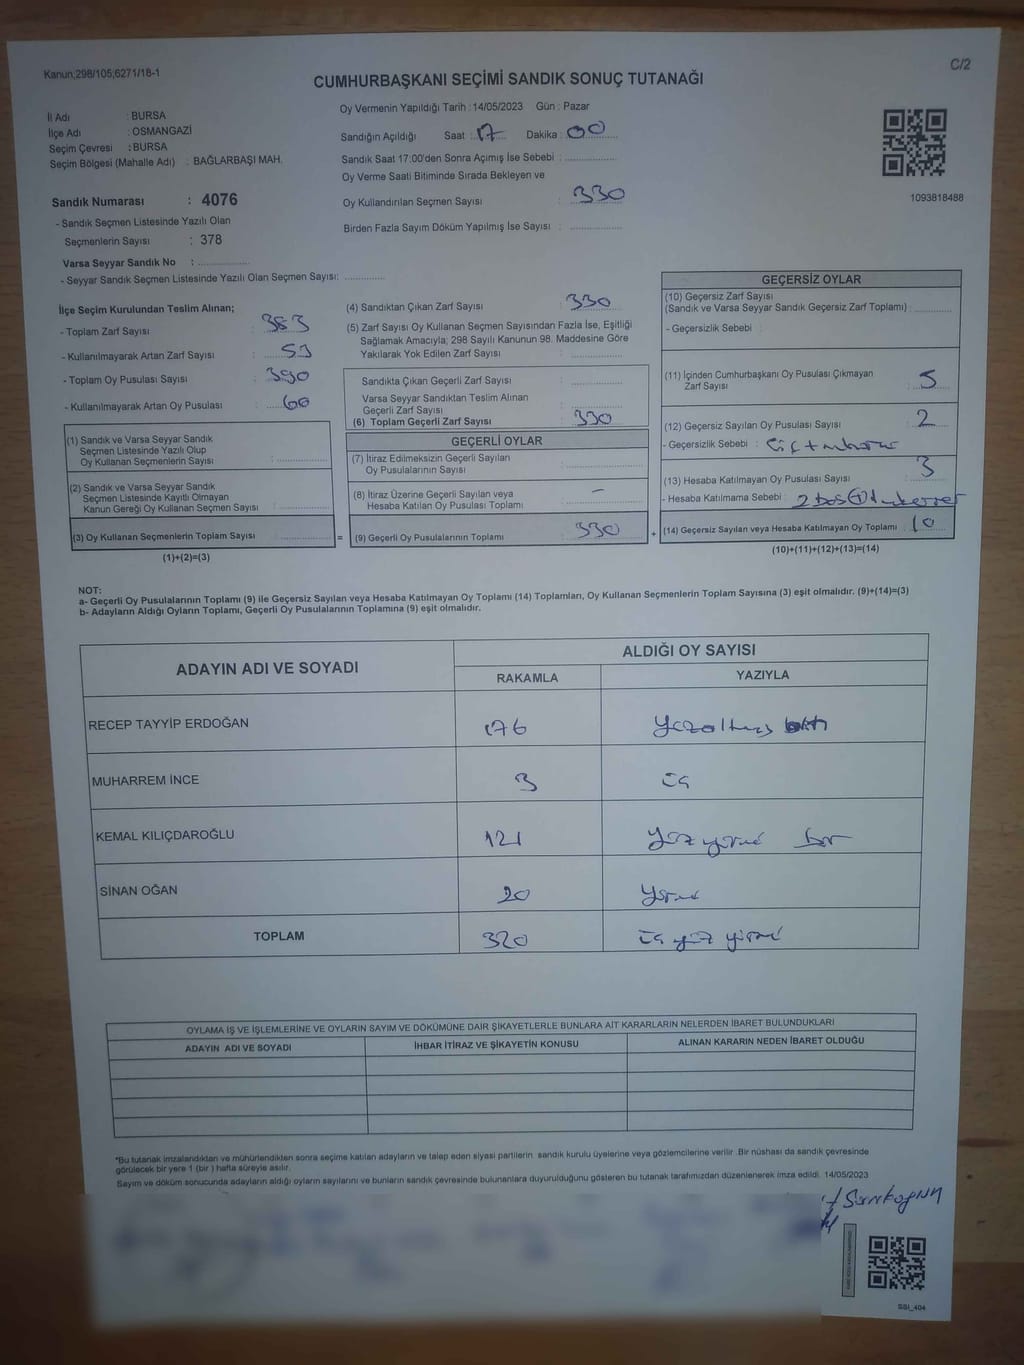 Kanun;298/105;6271/18-1
C/2
CUMHURBAŞKANI SEÇİMİ SANDIK SONUÇ TUTANAĞI
İl Adı : BURSA
İlçe Adı : OSMANGAZİ
Seçim Çevresi : BURSA
Seçim Bölgesi (Mahalle Adı) : BAĞLARBAŞI MAH.
Sandık Numarası : 4076
- Sandık Seçmen Listesinde Yazılı Olan
Seçmenlerin Sayısı : 378
Varsa Seyyar Sandık No :
- Seyyar Sandık Seçmen Listesinde Yazılı Olan Seçmen Sayısı:
Oy Vermenin Yapıldığı Tarih : 14/05/2023 Gün : Pazar
Sandığın Açıldığı Saat : 17 Dakika : 00
Sandık Saat 17:00'den Sonra Açımış İse Sebebi :
Oy Verme Saati Bitiminde Sırada Bekleyen ve
Oy Kullandırılan Seçmen Sayısı : 330
Birden Fazla Sayım Döküm Yapılmış İse Sayısı :
1093818488
İlçe Seçim Kurulundan Teslim Alınan;
- Toplam Zarf Sayısı : 383
- Kullanılmayarak Artan Zarf Sayısı : 53
- Toplam Oy Pusulası Sayısı : 390
- Kullanılmayarak Artan Oy Pusulası : 60
(1) Sandık ve Varsa Seyyar Sandık
Seçmen Listesinde Yazılı Olup
Oy Kullanan Seçmenlerin Sayısı :
(2) Sandık ve Varsa Seyyar Sandık
Seçmen Listesinde Kayıtlı Olmayan
Kanun Gereği Oy Kullanan Seçmen Sayısı :
(3) Oy Kullanan Seçmenlerin Toplam Sayısı :
(1)+(2)=(3)
(4) Sandıktan Çıkan Zarf Sayısı : 330
(5) Zarf Sayısı Oy Kullanan Seçmen Sayısından Fazla İse, Eşitliği
Sağlamak Amacıyla; 298 Sayılı Kanunun 98. Maddesine Göre
Yakılarak Yok Edilen Zarf Sayısı :
Sandıkta Çıkan Geçerli Zarf Sayısı :
Varsa Seyyar Sandıktan Teslim Alınan
Geçerli Zarf Sayısı :
(6) Toplam Geçerli Zarf Sayısı : 330
GEÇERLİ OYLAR
(7) İtiraz Edilmeksizin Geçerli Sayılan
Oy Pusulalarının Sayısı :
(8) İtiraz Üzerine Geçerli Sayılan veya
Hesaba Katılan Oy Pusulası Toplamı : –
= (9) Geçerli Oy Pusulalarının Toplamı : 330
GEÇERSİZ OYLAR
(10) Geçersiz Zarf Sayısı
(Sandık ve Varsa Seyyar Sandık Geçersiz Zarf Toplamı) :
- Geçersizlik Sebebi :
(11) İçinden Cumhurbaşkanı Oy Pusulası Çıkmayan
Zarf Sayısı : 5
(12) Geçersiz Sayılan Oy Pusulası Sayısı : 2
- Geçersizlik Sebebi :
(13) Hesaba Katılmayan Oy Pusulası Sayısı : 3
- Hesaba Katılmama Sebebi : 2 boş
+ (14) Geçersiz Sayılan veya Hesaba Katılmayan Oy Toplamı : 10
(10)+(11)+(12)+(13)=(14)
NOT:
a- Geçerli Oy Pusulalarının Toplamı (9) ile Geçersiz Sayılan veya Hesaba Katılmayan Oy Toplamı (14) Toplamları, Oy Kullanan Seçmenlerin Toplam Sayısına (3) eşit olmalıdır. (9)+(14)=(3)
b- Adayların Aldığı Oyların Toplamı, Geçerli Oy Pusulalarının Toplamına (9) eşit olmalıdır.
ADAYIN ADI VE SOYADI
ALDIĞI OY SAYISI
RAKAMLA YAZIYLA
RECEP TAYYİP ERDOĞAN 176 Yüzaltmış altı
MUHARREM İNCE 3 üç
KEMAL KILIÇDAROĞLU 121 Yüz yirmi bir
SİNAN OĞAN 20 Yirmi
TOPLAM 320 üç yüz yirmi
OYLAMA İŞ VE İŞLEMLERİNE VE OYLARIN SAYIM VE DÖKÜMÜNE DAİR ŞİKAYETLERLE BUNLARA AİT KARARLARIN NELERDEN İBARET BULUNDUKLARI
ADAYIN ADI VE SOYADI İHBAR İTİRAZ VE ŞİKAYETİN KONUSU ALINAN KARARIN NEDEN İBARET OLDUĞU
*Bu tutanak imzalandıktan ve mühürlendikten sonra seçime katılan adayların ve talep eden siyasi partilerin sandık kurulu üyelerine veya gözlemcilerine verilir .Bir nüshası da sandık çevresinde
görülecek bir yere 1 (bir ) hafta süreyle asılır.
Sayım ve döküm sonucunda adayların aldığı oyların sayılarını ve bunların sandık çevresinde bulunanlara duyurulduğunu gösteren bu tutanak tarafımızdan düzenlenerek imza edildi. 14/05/2023
SSI_404